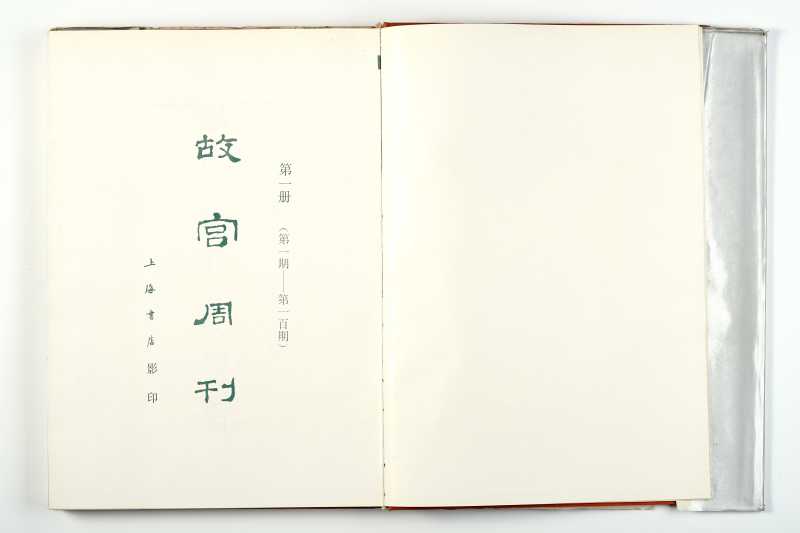 第一册 (第一期——第一百期)
故宫周刊
上海書店影印